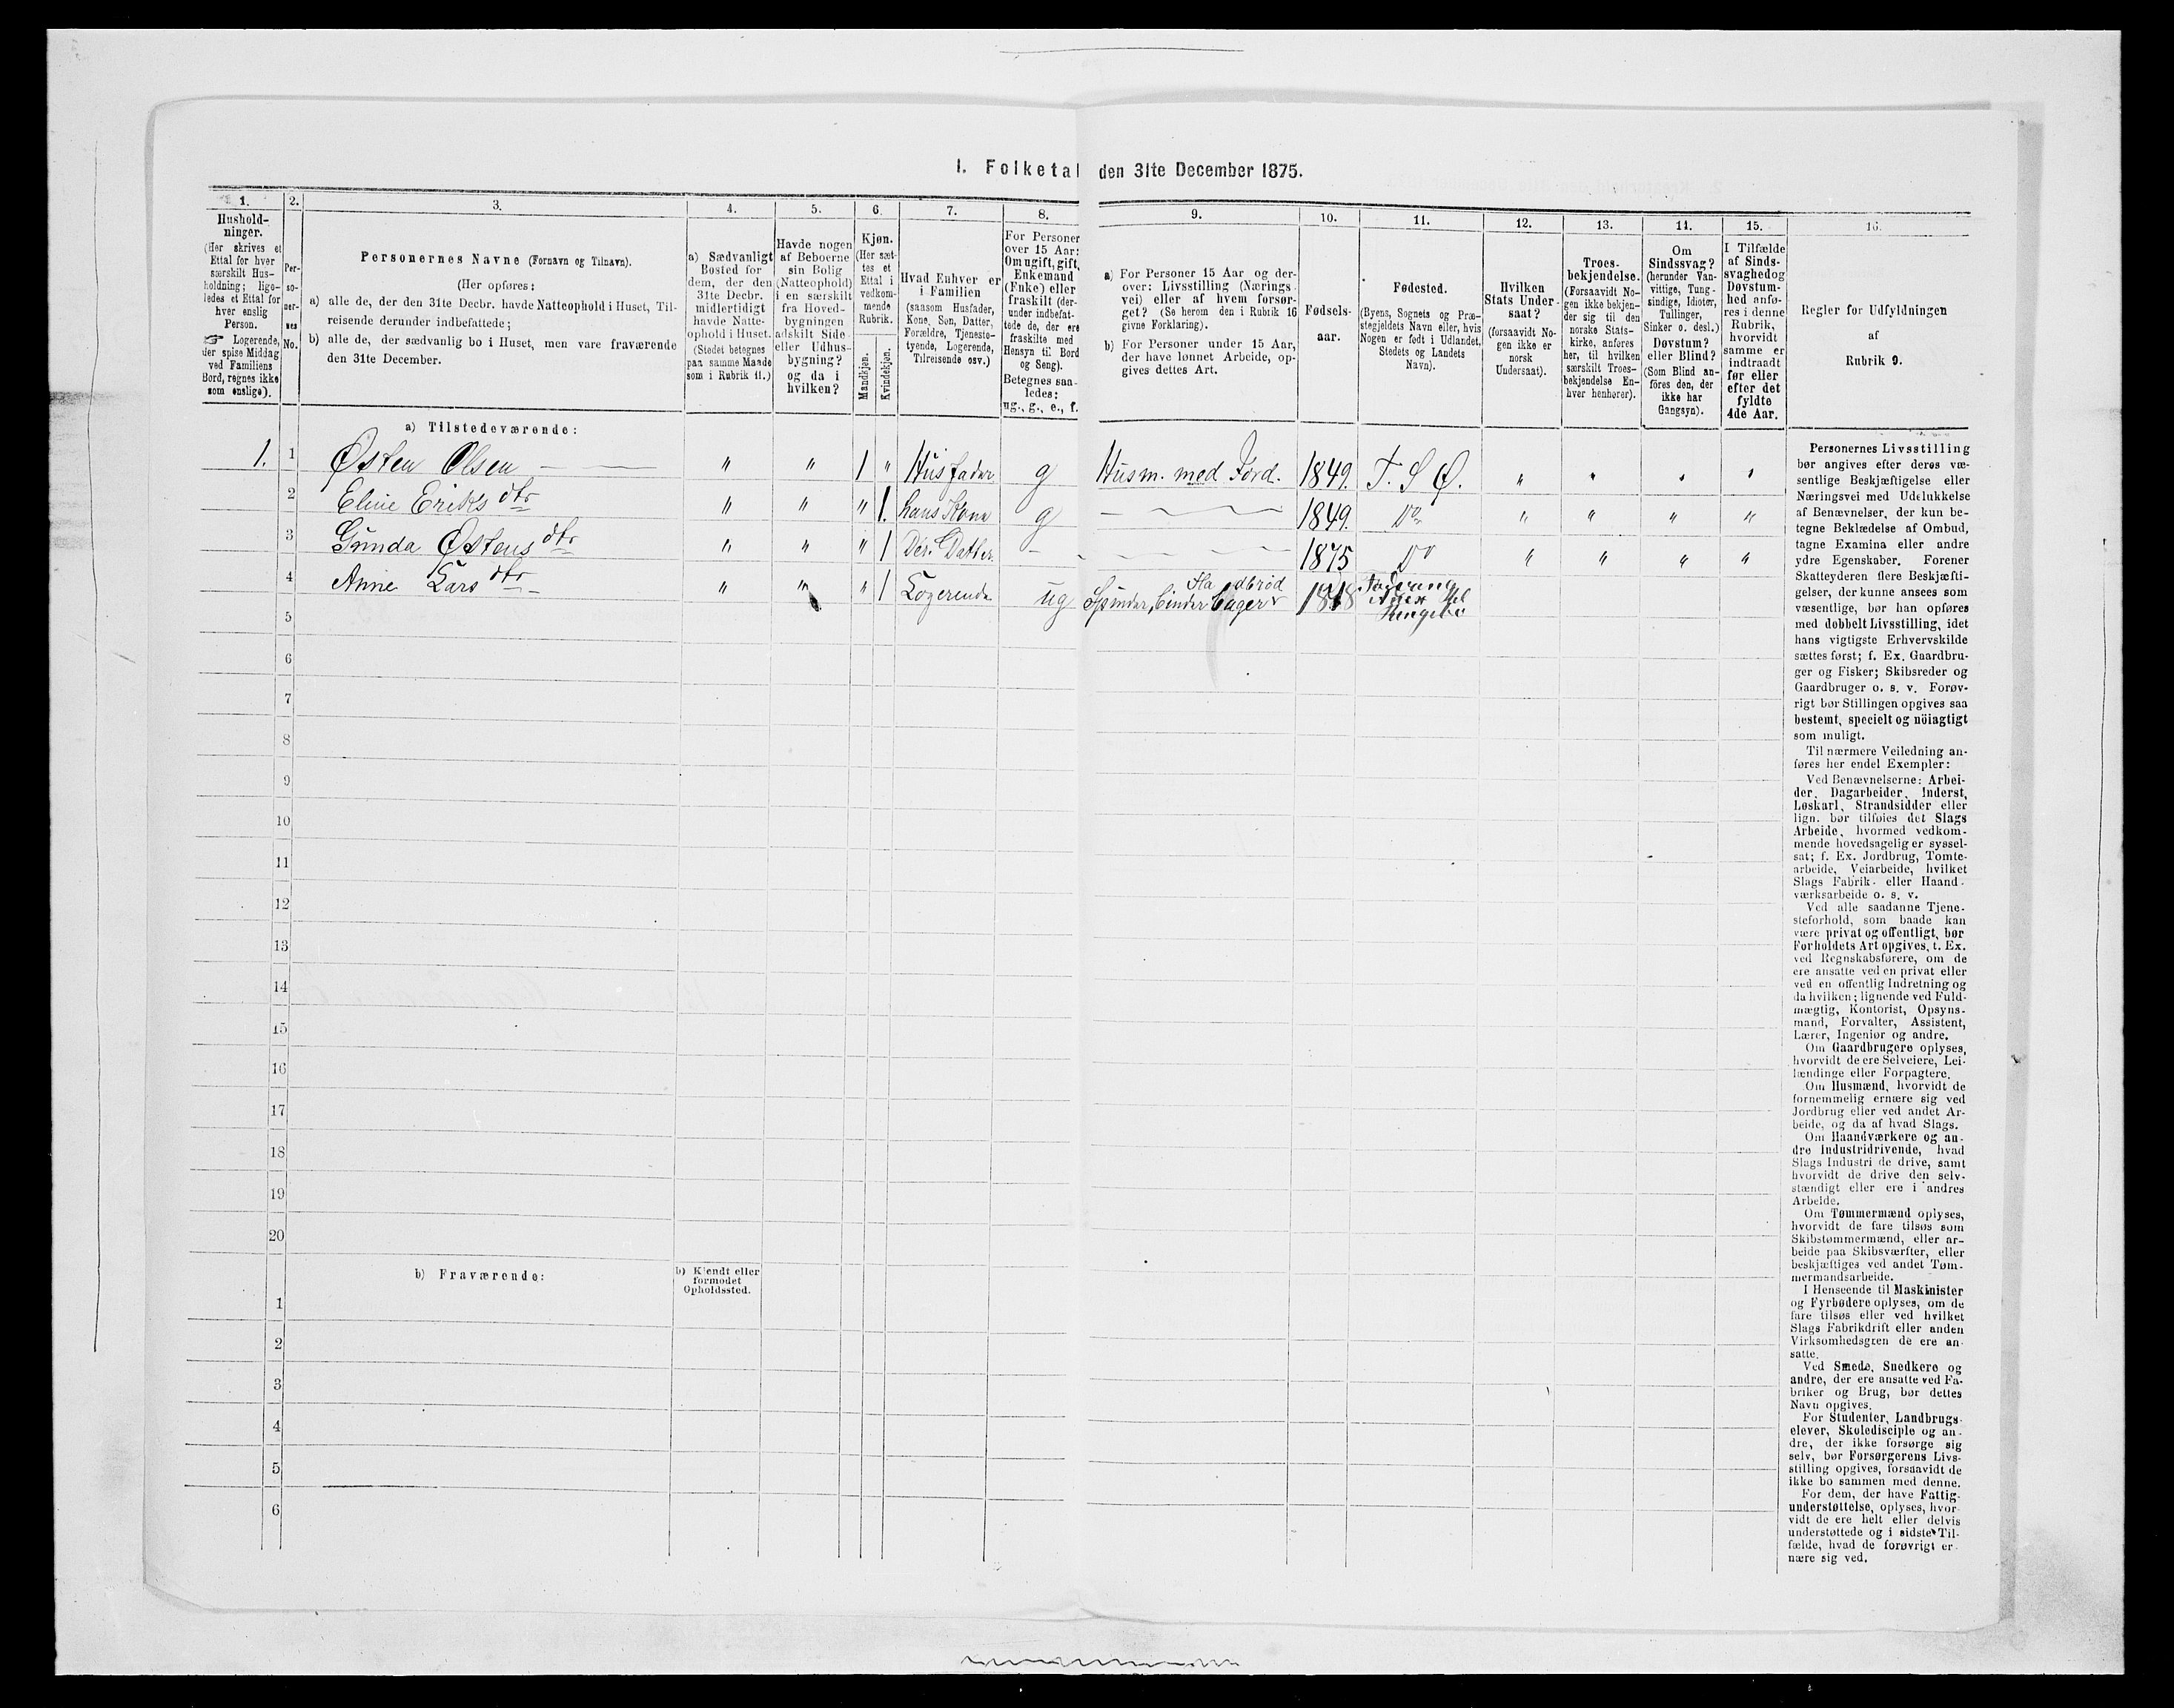 I. Folketal den 31te December 1875.
1. 2. 3. 4. 5. 6. 7. 8. 9. 10. 11. 12. 13. 14. 15. 16.
Hushold-
ninger.
(Her skrives et
Ettal for hver
særskilt Hus-
holdning; lige-
ledes et Ettal for
hver enslig
Person.
☞ Logerende,
der spise Middag
ved Familiens
Bord, regnes ikke
som enslige).
Per-
so-
ner-
nes
No.
Personernes Navne (Fornavn og Tilnavn).
(Her opføres:
a) alle de, der den 31te Decbr. havde Natteophold i Huset, Til-
reisende derunder indbefattede;
b) alle de, der sædvanlig bo i Huset, men vare fraværende
den 31te December.
a) Sædvanligt
Bosted for
dem, der den
31te Decbr.
midlertidigt
havde Natte-
ophold i Huset.
(Stedet betegnes
paa samme Maade
som i Rubrik 11.)
Havde nogen
af Beboerne
sin Bolig
(Natteophold)
i en særskilt
fra Hoved-
bygningen
adskilt Side-
eller Udhus-
bygning?
og da i
hvilken?
Kjøn.
(Her sæt-
tes et
Ettal i
vedkom-
mende
Rubrik.
Mandkjøn.
Kvindekjøn.
Hvad Enhver er
i Familien
(saasom Husfader,
Kone, Søn, Datter,
Forældre, Tjeneste-
tyende, Logerende,
Tilreisende osv.)
For Personer
over 15 Aar:
Om ugift, gift,
Enkemand
(Enke) eller
fraskilt (der-
under indbefat-
tede de, der ere
fraskilte med
Hensyn til Bord
og Seng).
Betegnes saa-
ledes:
ug., g., e., f.
a) For Personer 15 Aar og der-
over: Livsstilling (Nærings-
vei) eller af hvem forsør-
get? (Se herom den i Rubrik 16
givne Forklaring).
b) For Personer under 15 Aar,
der have lønnet Arbeide, op-
gives dettes Art.
Fødsels-
aar.
Fødested.
(Byens, Sognets og Præ-
stegjeldets Navn eller, hvis
Nogen er født i Udlandet,
Stedets og Landets
Navn).
Hvilken
Stats Under-
saat?
(forsaavidt No-
gen ikke er
norsk
Undersaat).
Troes-
bekjendelse.
(Forsaavidt No-
gen ikke bekjen-
der sig til den
norske Stats-
kirke, anføres
her, til hvilken
særskilt Troes-
bekjendelse En-
hver henhører).
Om
Sindssvag?
(herunder Van-
vittige, Tung-
sindige, Idioter,
Tullinger,
Sinker o. desl.)
Døvstum?
eller Blind?
(Som Blind an-
føres den, der
ikke har
Gangsyn).
I Tilfælde
af Sinds-
svaghed og
Døvstum-
hed anfø-
res i denne
Rubrik,
hvorvidt
samme er
indtraadt
før eller
efter det
fyldte
4de Aar.
Regler for Udfyldningen
af
Rubrik 9.
a) Tilstedeværende:
1. 1 Østen Olsen — — " " 1 " Husfader g Husm. med Jord. 1849. T. S Ø. " " " "
2 Eline Eriks dtr " " " 1. hans Kone g 1849. Do " " " "
3 Gunda Østens dtr " " " 1 Der. Datter. - 1875 Do " " " "
4 Anne Lars dtr " " " 1 Logerende ug Spinder, binder Fladbrød bager 1848 Anex til
5
6
7
8
9
10
11
12
13
14
15
16
17
18
19
20
b) Fraværende:
b) Kjendt eller
formodet
Opholdssted.
1
2
3
4
5
6
Personernes Livsstilling
bør angives efter deres væ-
sentlige Beskjæftigelse eller
Næringsvei med Udelukkelse
af Benævnelser, der kun be-
tegne Beklædelse af Ombud,
tagne Examina eller andre
ydre Egenskaber. Forener
Skatteyderen flere Beskjæfti-
gelser, der kunne ansees som
væsentlige, bør han opføres
med dobbelt Livsstilling, idet
hans vigtigste Erhvervskilde
sættes først; f. Ex. Gaardbru-
ger og Fisker; Skibsreder og
Gaardbruger o. s. v. Forøv-
rigt bør Stillingen opgives saa
bestemt, specielt og nöiagtigt
som muligt.
Til nærmere Veiledning an-
føres her endel Exempler:
Ved Benævnelserne: Arbei-
der, Dagarbeider, Inderst,
Løskarl, Strandsidder eller
lign. bør tilføies det Slags
Arbeide, hvormed vedkom-
mende hovedsagelig er syssel-
sat; f. Ex. Jordbrug, Tomte-
arbeide, Veiarbeide, hvilket
Slags Fabrik- eller Haand-
værksarbeide o. s. v.
Ved alle saadanne Tjene-
steforhold, som baade kan
være privat og offentligt, bør
Forholdets Art opgives, t. Ex.
ved Regnskabsførere, om de
ere ansatte ved en privat eller
ved en offentlig Indretning og
da hvilken; lignende ved Fuld-
mægtig, Kontorist, Opsyns-
mand, Forvalter, Assistent,
Lærer, Ingeniør og andre.
Om Gaardbrugere oplyses,
hvorvidt de ere Selveiere, Lei-
lændinge eller Forpagtere.
Om Husmænd, hvorvidt de
fornemmelig ernære sig ved
Jordbrug eller ved andet Ar-
beide, og da af hvad Slags.
Om Haandværkere og an-
dre Industridrivende, hvad
Slags Industri de drive, samt
hvorvidt de drive den selv-
stændigt eller ere i andres
Arbeide.
Om Tømmermænd oplyses,
hvorvidt de fare tilsøs som
Skibstømmermænd, eller ar-
beide paa Skibsværfter, eller
beskjæftiges ved andet Tøm-
mermandsarbeide.
I Henseende til Maskinister
og Fyrbødere oplyses, om de
fare tilsøs eller ved hvilket
Slags Fabrikdrift eller anden
Virksomhedsgren de ere an-
satte.
Ved Smede, Snedkere og
andre, der ere ansatte ved Fa-
briker og Brug, bør dettes
Navn opgives.
For Studenter, Landbrugs-
elever, Skoledisciple og an-
dre, der ikke forsørge sig
selv, bør Forsørgerens Livs-
stilling opgives, forsaavidt de
ikke bo sammen med denne.
For dem, der have Fattig-
understøttelse, oplyses, hvor-
vidt de ere helt eller delvis
understøttede og i sidste Til-
fælde, hvad de forøvrigt er-
nære sig ved.